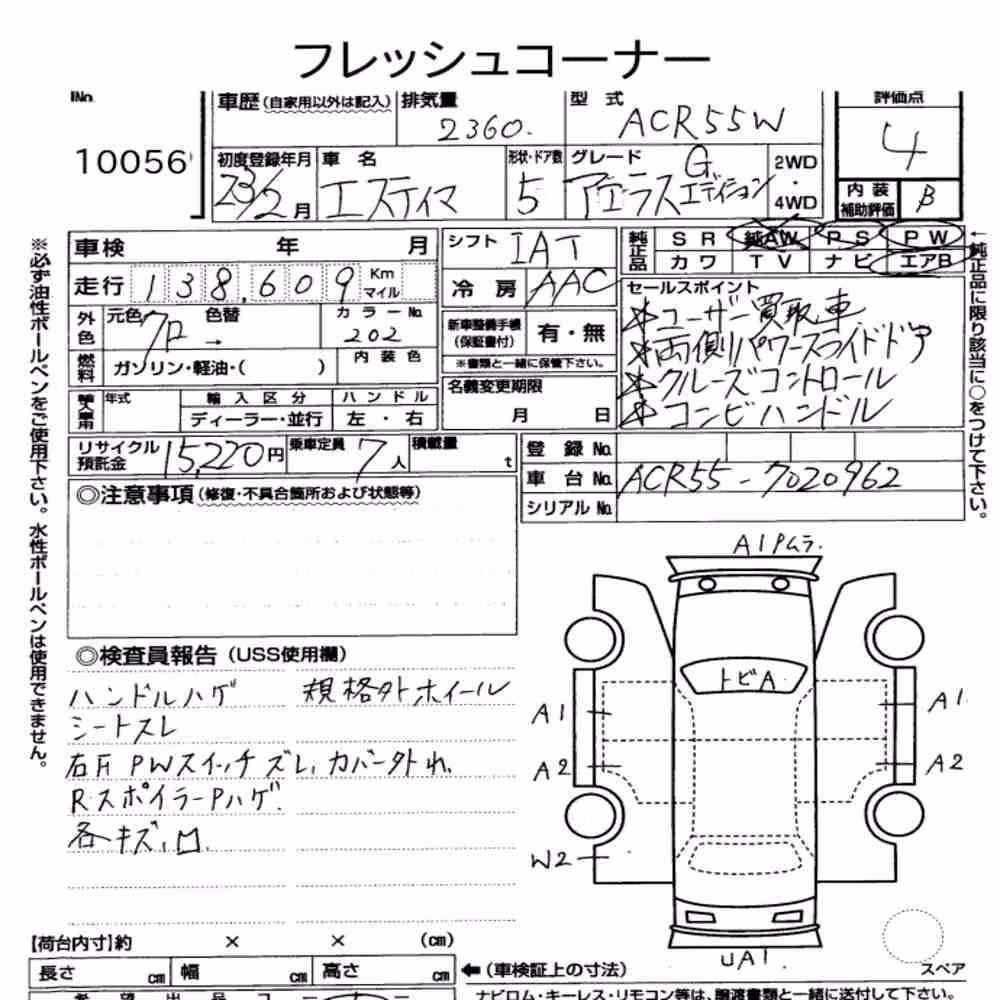 フレッシュコーナー
No.
10056
車歴 (自家用以外は記入)
排気量
2360.
型式
ACR55W
評価点
4
内装補助評価
B
初度登録年月
23/2月
車名
エスティマ
形状・ドア数
5
グレード
アエラス G エディション
2WD
・
4WD
※必ず油性ボールペンをご使用下さい。水性ボールペンは使用できません。
車検 年 月
シフト IAT
純正品 SR 純AW PS PW
カワ TV ナビ エアB
←純正品に限り該当に○をつけて下さい。
走行 138,609 Km マイル
冷房 AAC
セールスポイント
☆ユーザー買取車
☆両側パワースライドドア
☆クルーズコントロール
☆コンビハンドル
外色 元色 クロ → 色替
カラーNo. 202
新車整備手帳(保証書付) 有・無
※書類と一緒に保管下さい。
燃料 ガソリン・軽油・( )
内装色
名義変更期限
月 日
年式
輸入区分
ディーラー・並行
ハンドル
左・右
リサイクル預託金 15,220円
乗車定員 7人
積載量 t
登録No.
車台No. ACR55-7020962
シリアルNo.
◎注意事項(修復・不具合箇所および状態等)
◎検査員報告 (USS使用欄)
ハンドルハゲ 規格外ホイール
シートスレ
右F PWスイッチズレ、カバー外れ
R.スポイラーPハゲ
各キズ、凹.
A1Pムラ.
トビA
A1
A1
A2
A2
W2
UA1.
スペア
【荷台内寸】約 × × (cm)
長さ cm 幅 cm 高さ cm
←(車検証上の寸法)
希望出品コー
ナビロム・キーレス・リモコン等は、譲渡書類と一緒に送付して下さい。